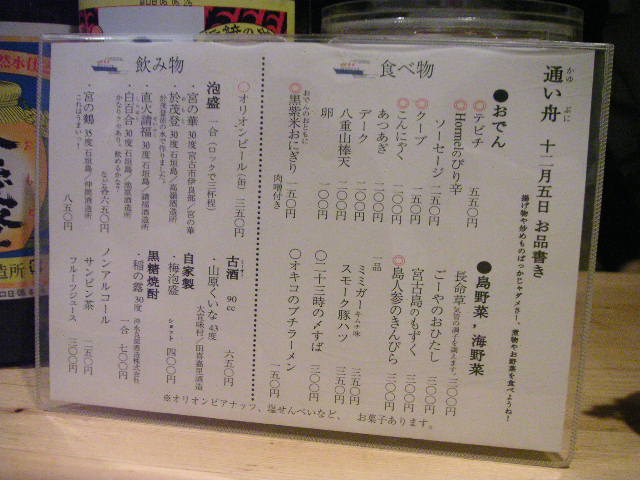 通い舟 十二月五日 お品書き
かよ ぶに
揚げ物や炒めものばっかじゃダメさー、煮物やお野菜を食べようね!
食べ物
●おでん
◎テビチ 五五〇円
◎Hormelのぴり辛
ソーセージ 二五〇円
◎クーブ 一五〇円
◎こんにゃく 一〇〇円
あつあげ 二〇〇円
データ 二〇〇円
八重山棒天 二〇〇円
卵 一〇〇円
おでんのおともに
◎黒紫米おにぎり 一五〇円
肉噌付き
●島野菜，海野菜
長命草 気管の調子を調えます。 三〇〇円
ごーやのおひたし 三〇〇円
宮古島のもずく 三〇〇円
◎島人参のきんぴら 三〇〇円
一品
ミミガーキムチ味 三五〇円
スモーク豚ハツ 三五〇円
〇二十三時の〆すば 三〇〇円
〇オキコのプチラーメン 一五〇円
飲み物
〇オリオンビール(缶) 三五〇円
泡盛 一合(ロックで三杯程)
・宮の華 30度 宮古市伊良部/宮の華
・於茂登 30度 石垣島/高嶺酒造所
於茂登岳の水で作りました。
・直火請福 30度 石垣島/請福酒造所
・白百合 30度 石垣島/池原酒造所
かなりクセがあり。飲めるかな?
など各 六五〇円
・宮の鶴 35度 石垣島/仲間酒造所
これはうまいっ! 八五〇円
古酒 90cc
・山原くいな 43度
大宜味村/田嘉里酒造 六五〇円
自家製
・梅泡盛 ショット 四〇〇円
黒糖焼酎
・稲の露 30度 沖永良部酒造株式会社
一合 七〇〇円
ノンアルコール
サンピン茶 二五〇円
フルーツジュース 三〇〇円
※オリオンビアナッツ、塩せんべいなど、 お菓子あります。